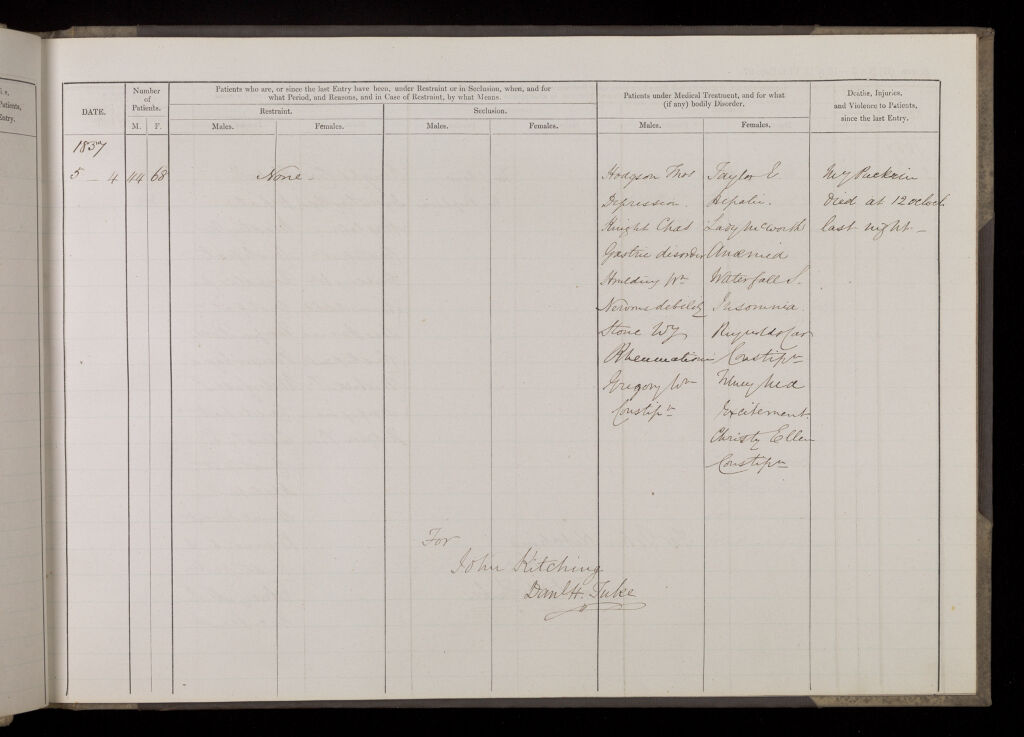 s,
Patients,
Entry.
DATE.
Number
of
Patients.
M. F.
Patients who are, or since the last Entry have been, under Restraint or in Seclusion, when, and for
what Period, and Reasons, and in Case of Restraint, by what Means.
Restraint.
Seclusion.
Males. Females. Males. Females.
Patients under Medical Treatment, and for what
(if any) bodily Disorder.
Males. Females.
Deaths, Injuries,
and Violence to Patients,
since the last Entry.
1857
5 - 4 44 68 None -
Hodgson Thos
Depression.
Knight Chas
Gastric disorder
Wm
Nervous debility
Stone W J
Rheumatism
Gregory Wm
Constipn
Taylor E
Hepatic.
Lady
Anæmia
Waterfall S.
Insomnia.
Reynolds Car
Constipn
Excitement.
Christy Ellen
Constipn
Died at 12 oclock
last night -
For
John Kitching
Danl H. Tuke